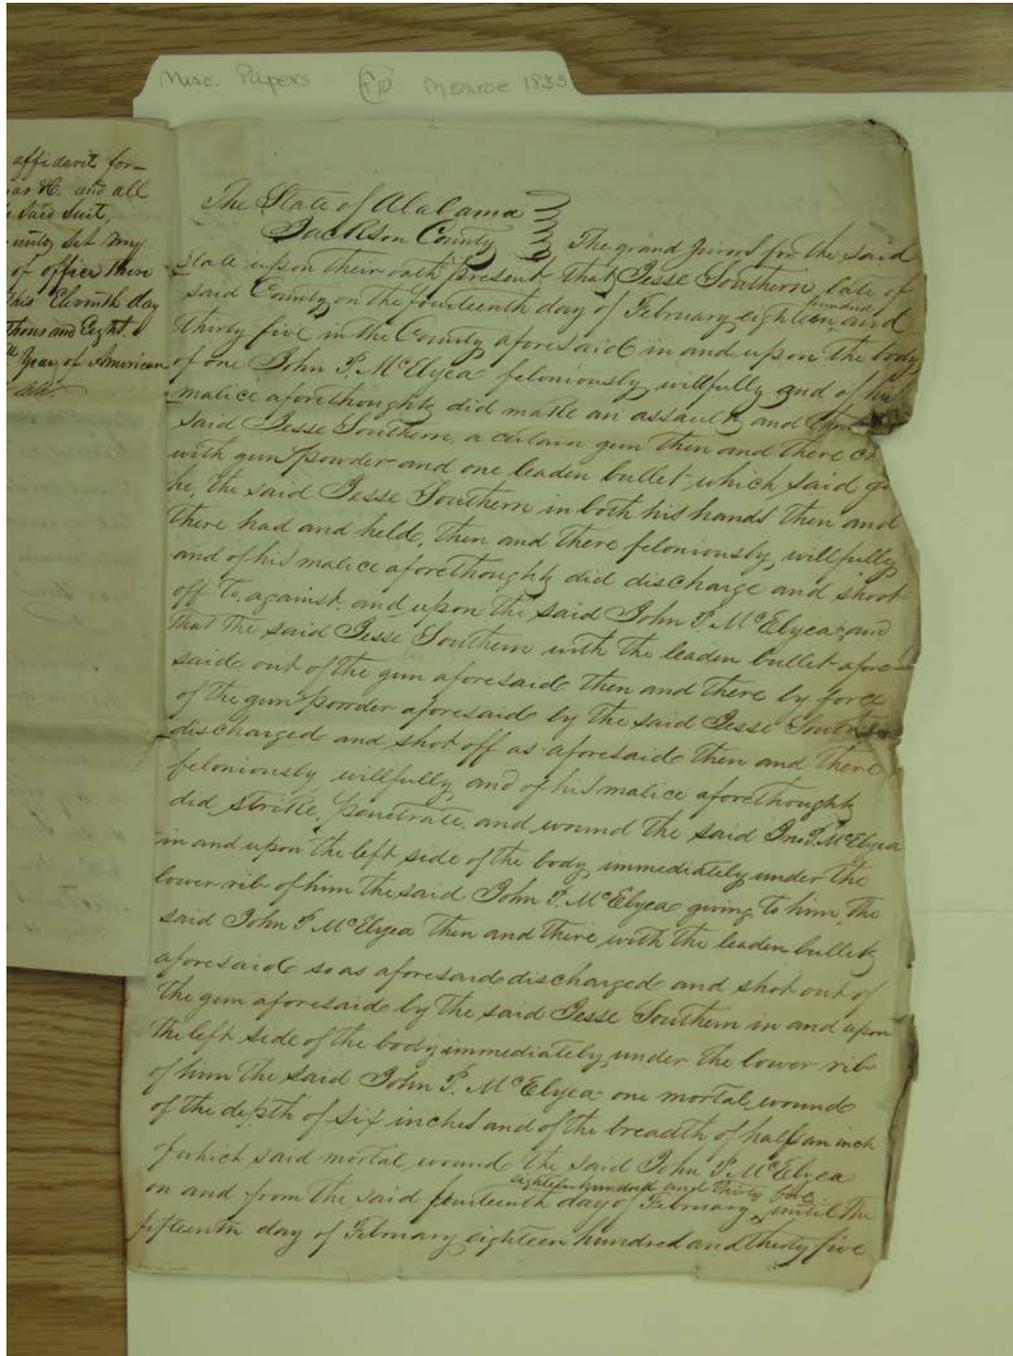 Misc. Papers Monroe 1835
affidavit for
and all
said Suit,
set my
of office there
this Eleventh day
thousand Eight
Year of American
The State of Alabama
Jackson County
The grand jurors for the said
State upon their oath present that Jesse Southern, late of
said County on the fourteenth day of February eighteen hundred and
thirty five in the County aforesaid in and upon the body
of one John P. McElyea feloniously, willfully and of his
malice aforethought, did make an assault, and
said Jesse Southern, a certain gun then and there
with gun powder and one leaden bullet, which said
he, the said Jesse Southern in both his hands then and
there had and held, then and there feloniously, willfully,
and of his malice aforethought did discharge and shoot
off to, against, and upon the said John P. McElyea and
that the said Jesse Southern with the leaden bullet afore-
said out of the gun aforesaid then and there by force
of the gun powder aforesaid by the said Jesse Southern
discharged and shot off as aforesaid then and there
feloniously willfully, and of his malice aforethought
did strike, penetrate, and wound the said Jno. P. McElyea
in and upon the left side of the body, immediately under the
lower rib of him the said John P. McElyea giving to him, the
said John P McElyea then and there, with the leaden bullet
aforesaid so as aforesaid discharged and shot out of
the gun aforesaid by the said Jesse Southern in and upon
the left side of the body immediately, under the lower rib
of him the said John P. McElyea one mortal wound
of the depth of six inches and of the breadth of half an inch
of which said mortal wound the said John P. McElyea
on and from the said fourteenth day of February eighteen hundred and thirty five until the
fifteenth day of February, eighteen hundred and thirty five